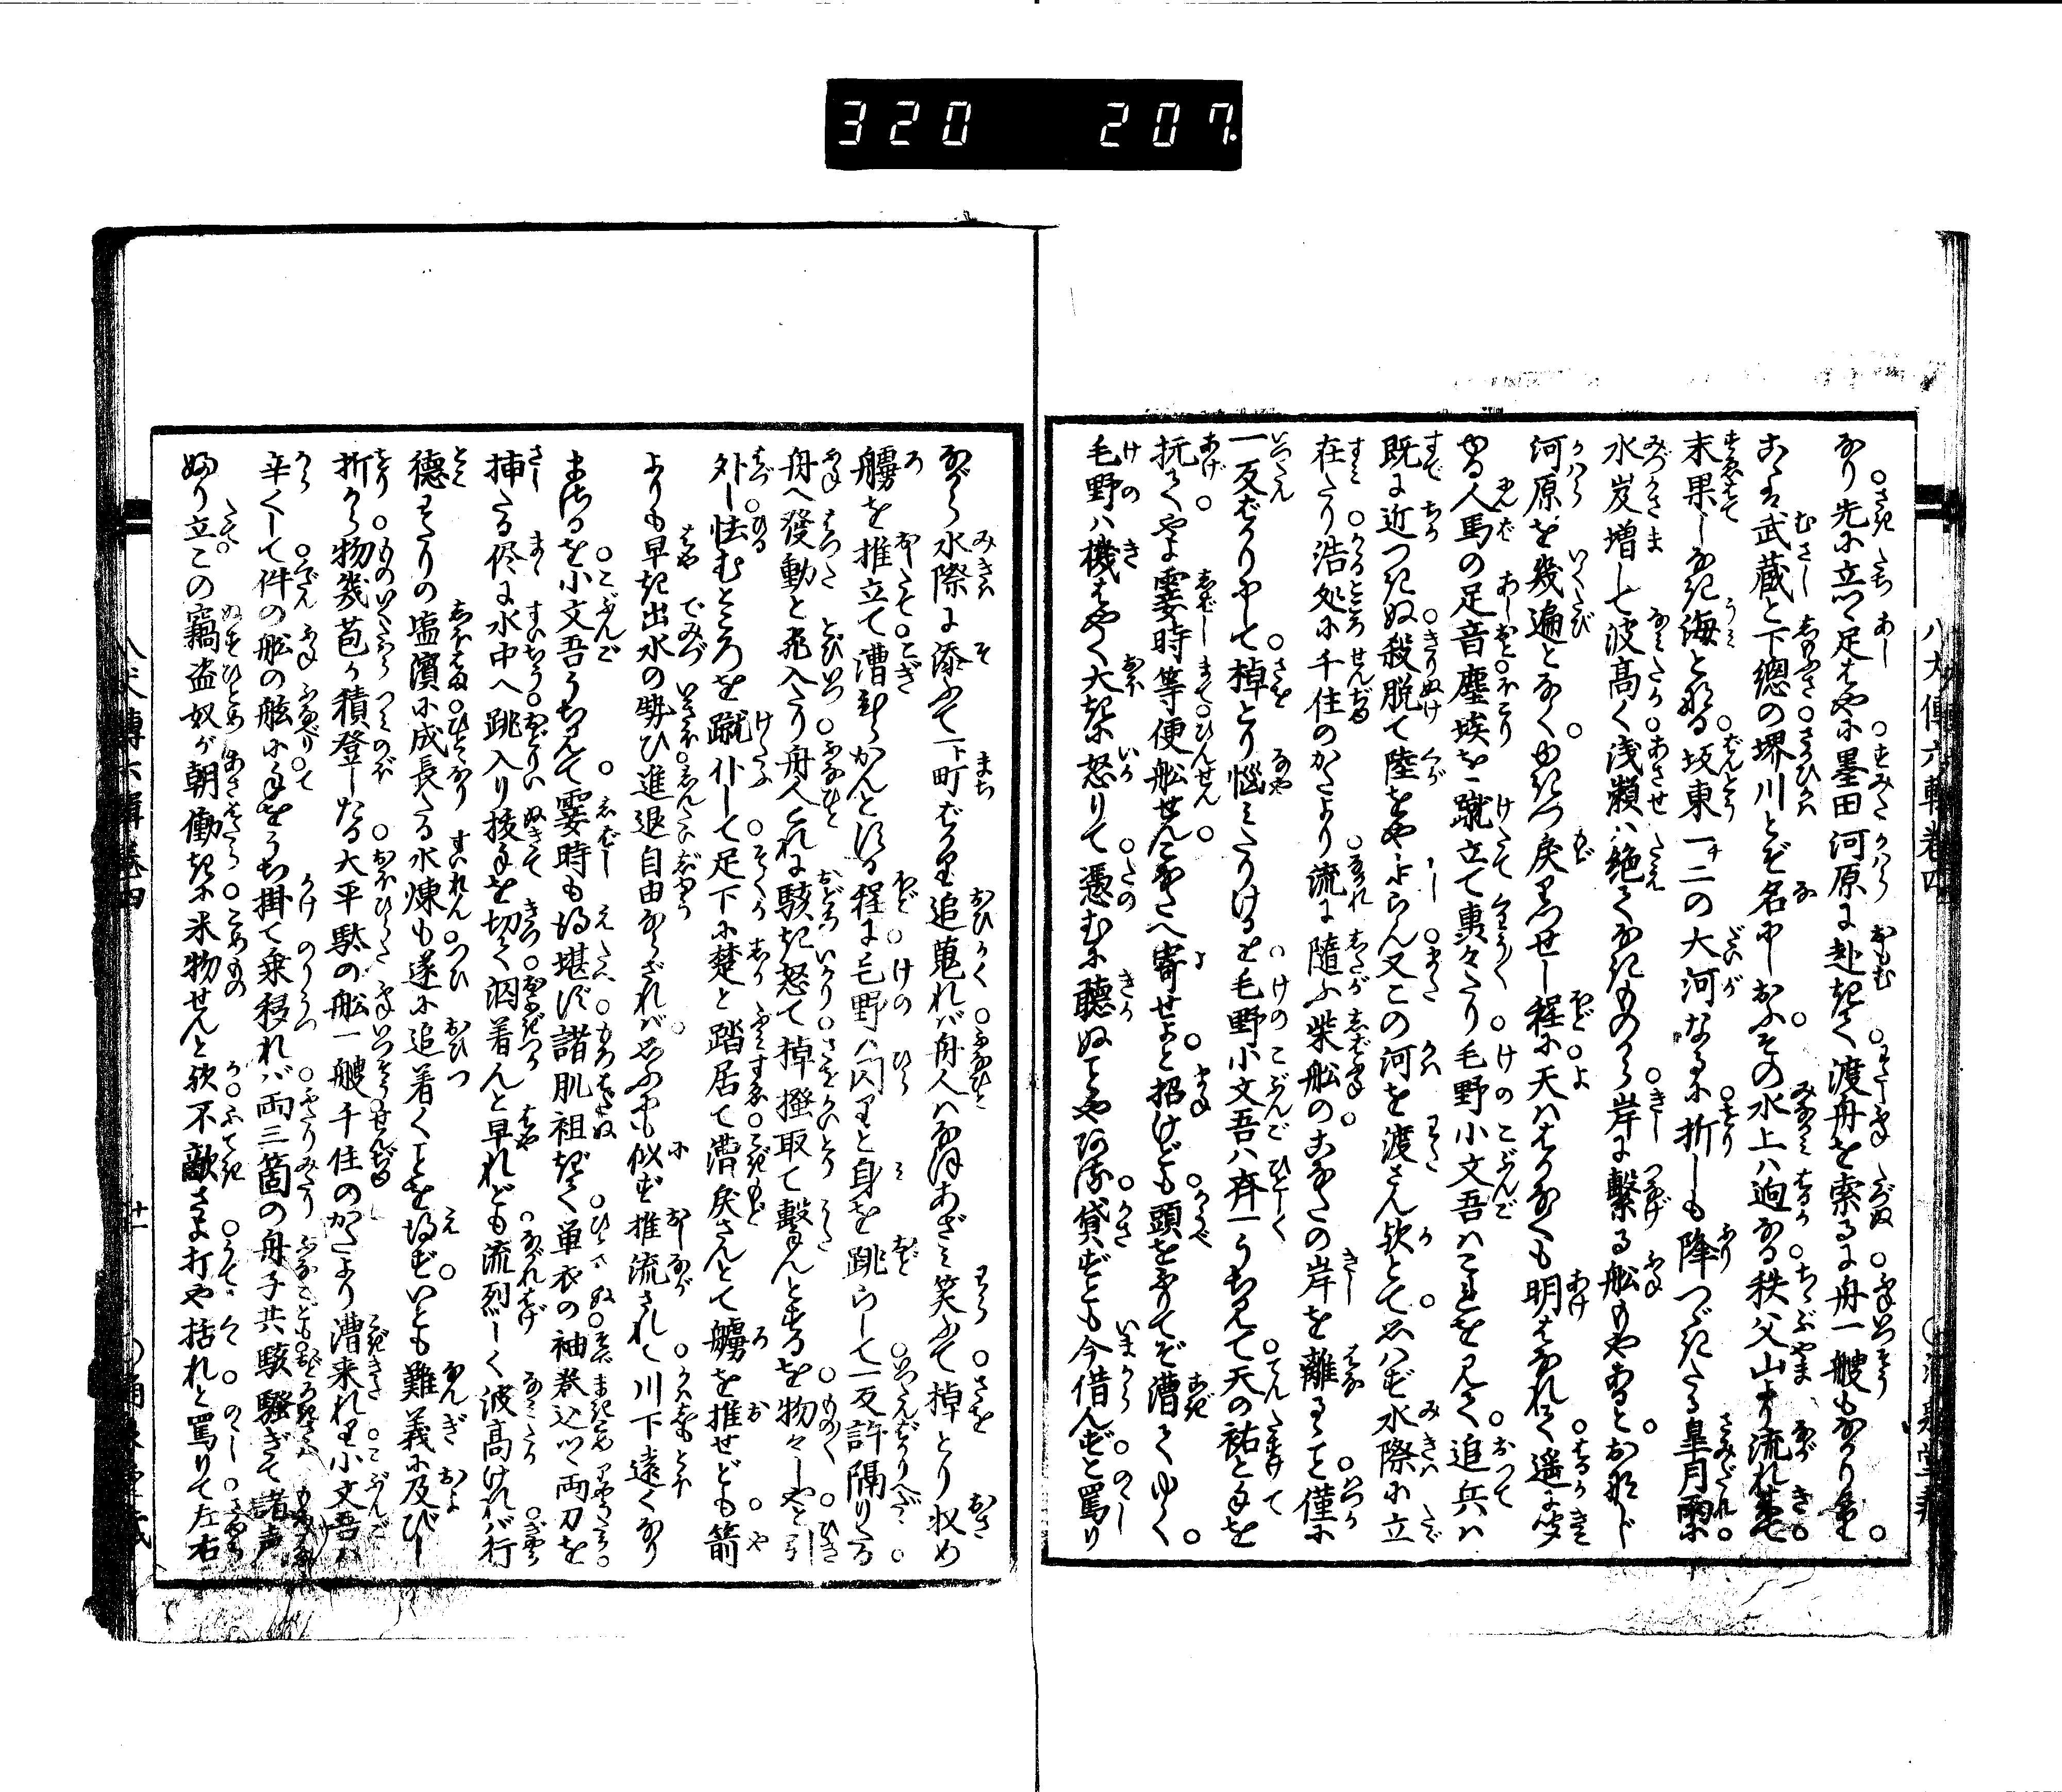 320 207.
八犬傳六輯巻四
なり先に立て足はやに墨田河原に赴きて渡舟を索るに舟一艘もなかりけり。
こは武蔵と下總の堺川とぞ名にしおふその水上ハ迥なる秩父山より流れ
末果しなき海となる坂東一二の大河なるに折しも降つゞきたる皐月雨に
水岌増して波高く浅瀬ハ絶てなきものから岸に繋る舩もやあるとおなじ
河原を幾遍となくゆきつ戻りつせし程に天ははかなくも明はなれて遥に
やる人馬の足音塵埃を蹴立て夷々たり毛野小文吾ハこれを見て追兵ハ
既に近つきぬ殺脱て陸をやよらん又この河を渡さん欤とて思ハず水際に立
在たり浩処に千住のかたより流に隨ふ柴舩のこなたの岸を離るゝこと僅に
一反ばかりにして棹とり悩みたりけるを毛野小文吾ハ齊一うち見て天の祐と手を
抗てやよ霎時等便舩せんこなたへ寄せよと招けども頭をふりてぞ漕てゆく。
毛野ハ機はやく大きに怒りて憑むに聴ぬことや阿容貸ずとも今借んずと罵り
ながら水際に添ふて一町ばかり追蒐れバ舟人ハなほあざみ笑ふて棹とり収め
艣を推立て漕ひらかんとする程に毛野ハ閃りと身を跳らして一反許隔りたる
舟へ發動と飛入たり舟人これに駭き怒て棹掻取て撃んとするを物々しやと引
外し怯むところを蹴仆して足下に楚と踏居て漕戻さんとて艣を推せども箭
よりも早き出水の勢ひ進退自由ならざれバ思ふにも似ず推流されて川下遠くなり
まゝるを小文吾うち見て霎時も得堪ず諸肌袒ぎて単衣の袖巻込て両刀を
挿たる侭に水中へ跳入り拔手を切て泅着んと早れども流烈しく波高けれバ行
徳わたりの塩濱に成長たる水煉も遂に追着くことを得ずいとも難義に及びし
折から物幾苞か積登したる大平駄の舩一艘千住のかたより漕来れり小文吾ハ
辛くして件の舩の舷に手をうち掛て乗移れバ両三箇の舟子共駭騒ぎて諸声
ふり立この竊盗奴が朝働きに米物せんと欤不敵さよ打や括れと罵りて左右
八犬傳六輯巻四
廿一